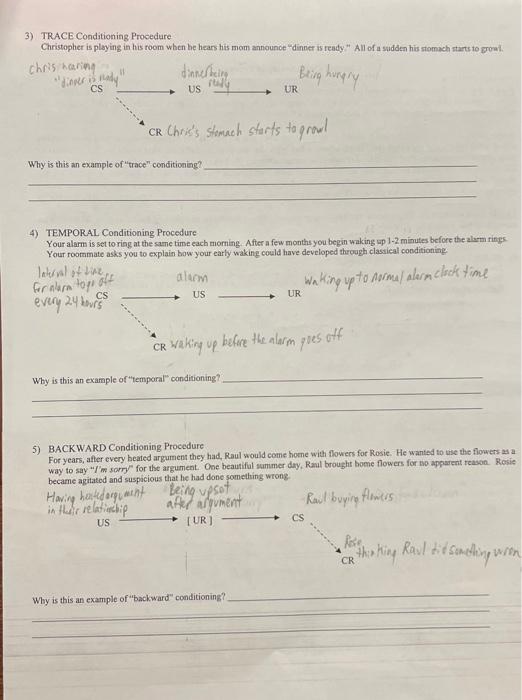 3) TRACE Conditioning Procedure
Christopher is playing in his room when he hears his mom announce "dinner is ready." All of a sudden his stomach starts to growl.
Chris hearing
"dinner is ready"
dinner being
ready
Being hungry
CS US UR
CR Chris's stomach starts to growl
Why is this an example of "trace" conditioning?
4) TEMPORAL Conditioning Procedure
Your alarm is set to ring at the same time each morning. After a few months you begin waking up 1-2 minutes before the alarm rings.
Your roommate asks you to explain how your early waking could have developed through classical conditioning.
Interval of time
for alarm to go off
every 24 hours
alarm
Waking up to normal alarm clock time
CS US UR
CR waking up before the alarm goes off
Why is this an example of "temporal" conditioning?
5) BACKWARD Conditioning Procedure
For years, after every heated argument they had, Raul would come home with flowers for Rosie. He wanted to use the flowers as a
way to say "I'm sorry" for the argument. One beautiful summer day, Raul brought home flowers for no apparent reason. Rosie
became agitated and suspicious that he had done something wrong.
Having heated argument
in their relationship
Being upset
after argument
Raul buying flowers
US [UR] CS
Rose
thinking Raul did something wron
CR
Why is this an example of "backward" conditioning?